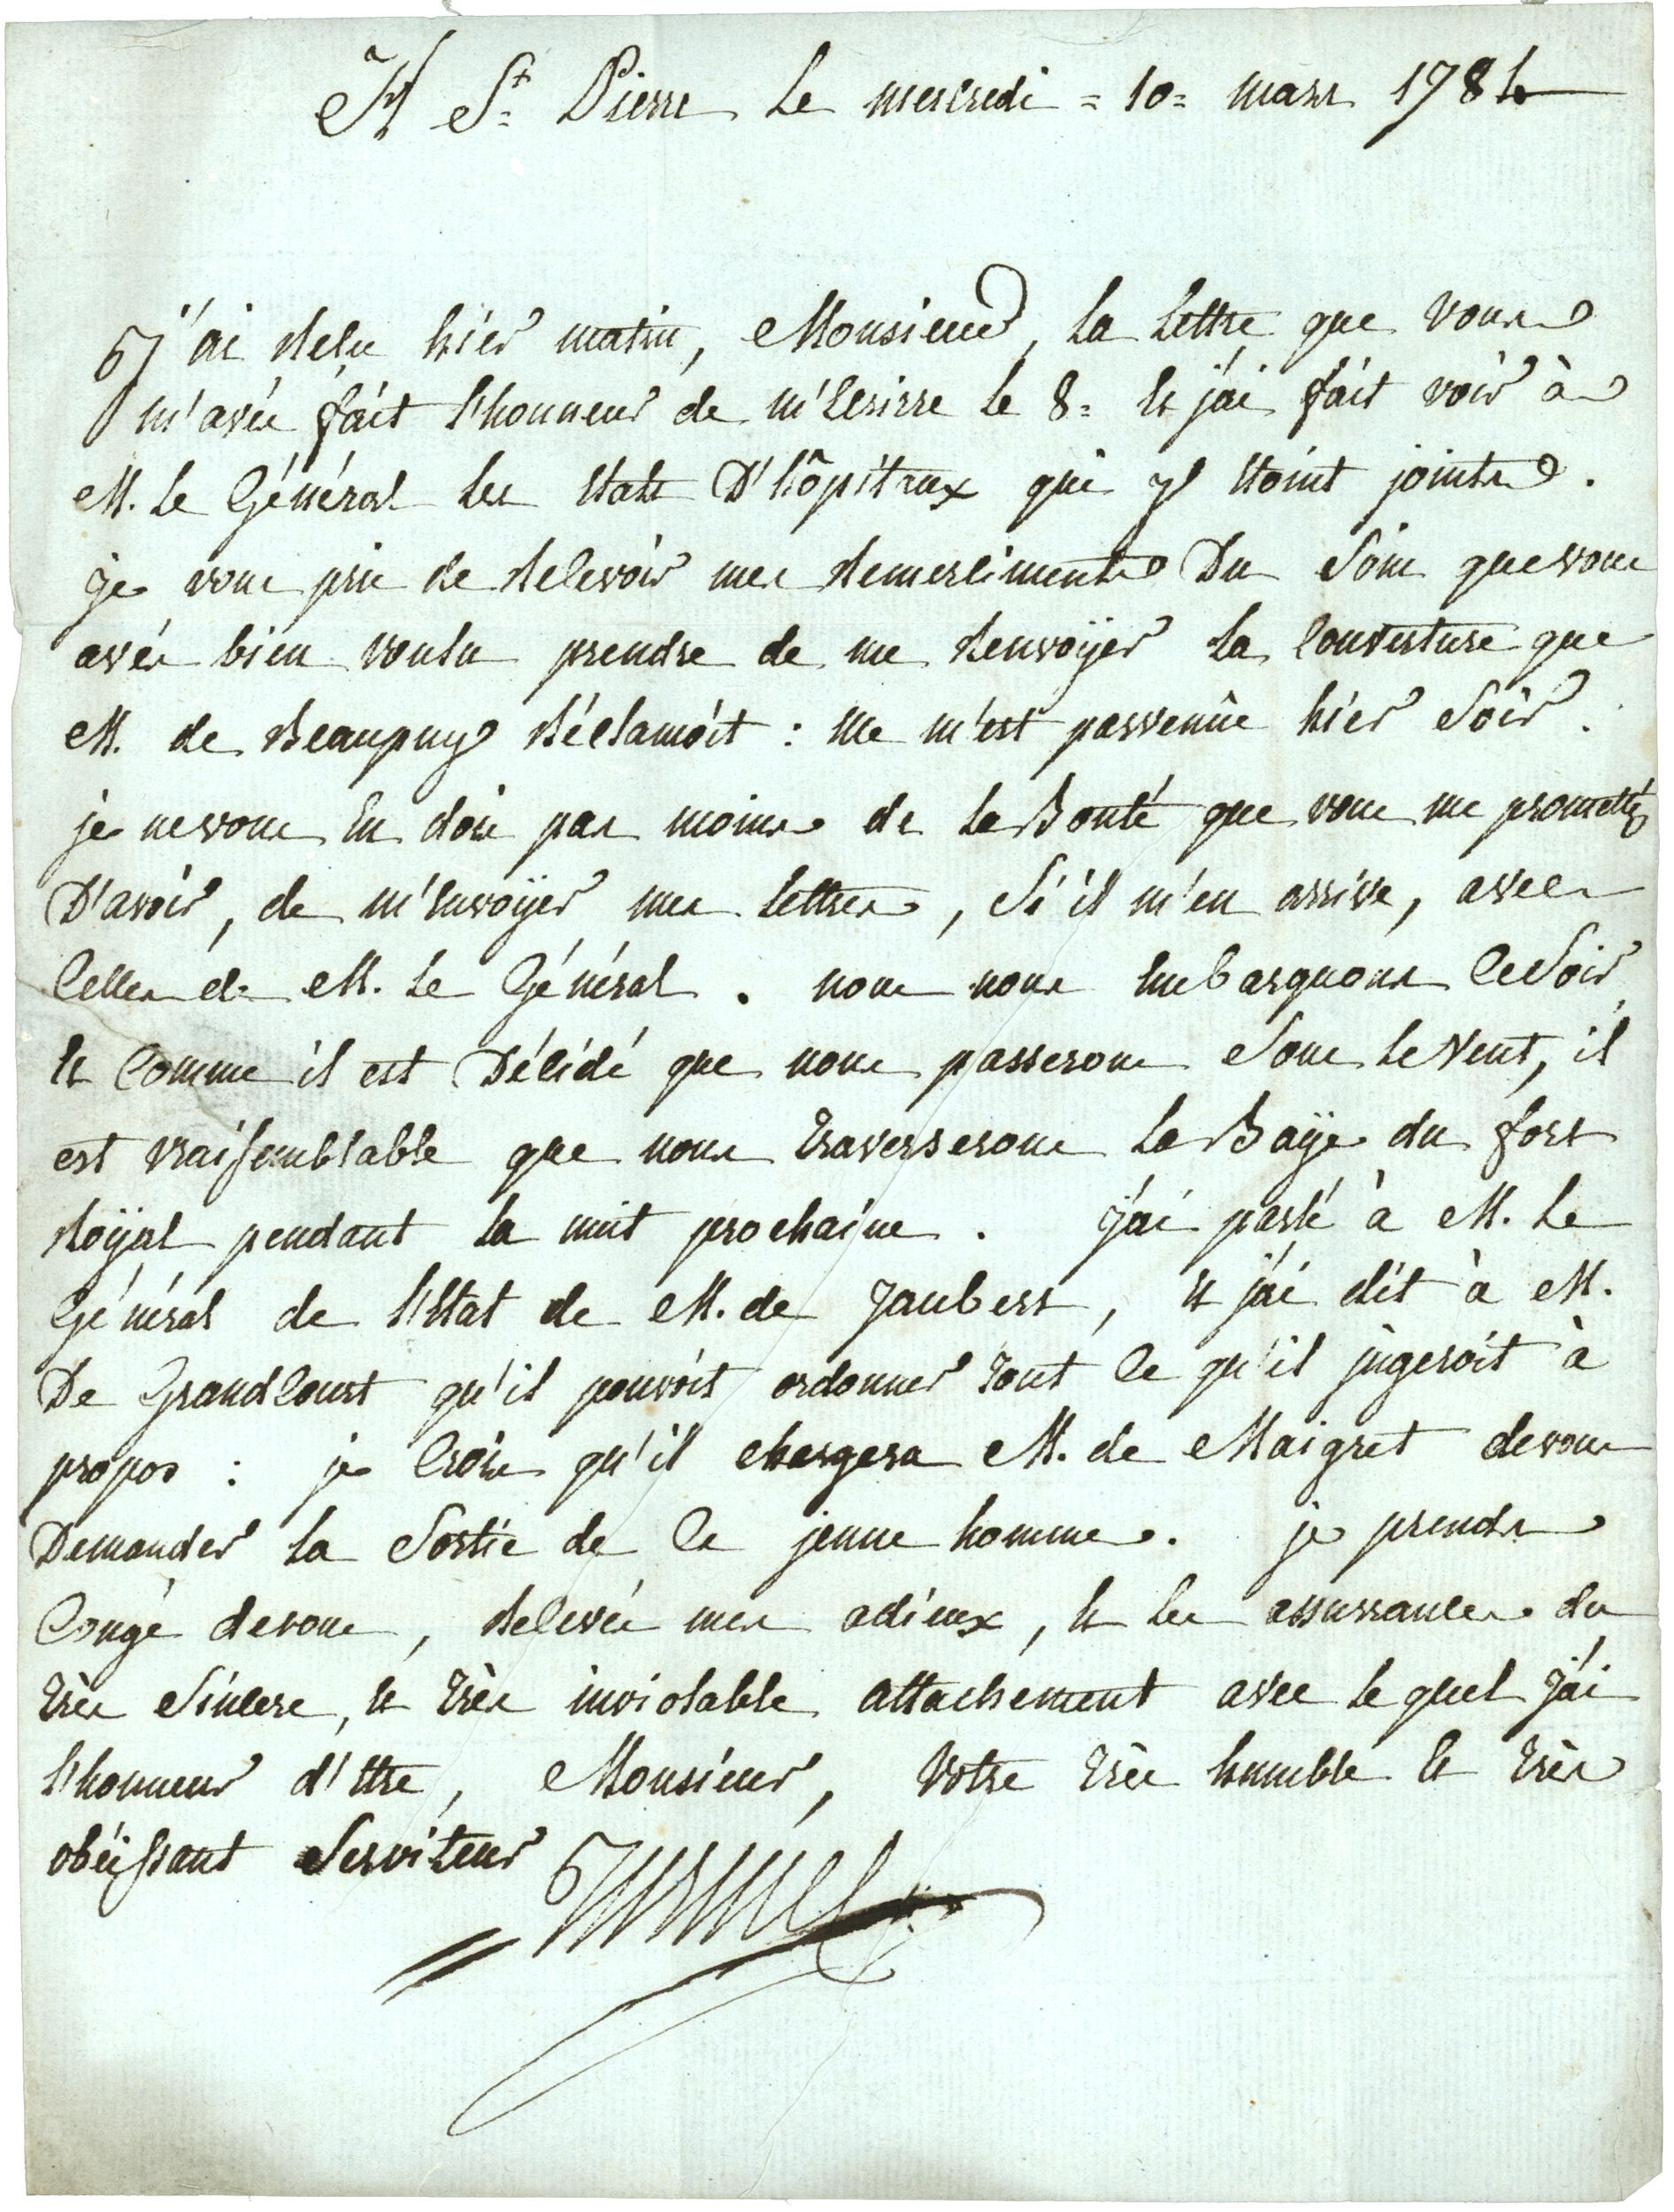 A St Pierre Le mercredi = 10 = mars 1784
J'ai Reçu hier matin, Monsieur, La Lettre que vous
m'avés fait L'honneur de m'Ecrire Le 8 = Et j'ai fait voir à
M. Le Général Les Etats D'hôpitaux qui y Etoint joints.
je vous prie de Recevoir mes Remerciments Du Soin que vous
avés bien voulu prendre de me Renvoÿer La Couverture que
M. de Beaupuy Réclamoit : Elle m'est parvenûe hier Soir.
je ne vous En dois pas moins de La Bonté que vous me promettés
D'avoir, de m'Envoÿer mes Lettres, Si il m'en arrive, avec
Celles de M. Le Général. nous nous Embarquons Ce Soir
Et Comme il est Décidé que nous passerons Sous Le Vent, il
est vraisemblable que nous Traverserons La Baÿe du fort
Roÿal pendant La nuit prochaine. J'ai parlé à M. Le
Général de L'Etat de M. de Jaubert, Et j'ai dit à M.
De GrandCourt qu'il pouvoit ordonner Tout Ce qu'il jugeroit à
propos : je Crois qu'il chargera M. de Maigret de vous
Demander La Sortie de Ce jeune homme. je prends
Congé de vous, Recevés mes adieux, Et Les assurrances du
Très Sincere, Et Très inviolable attachement avec Le quel J'ai
L'honneur d'Etre, Monsieur, Votre Très humble Et Très
obéissant Serviteur